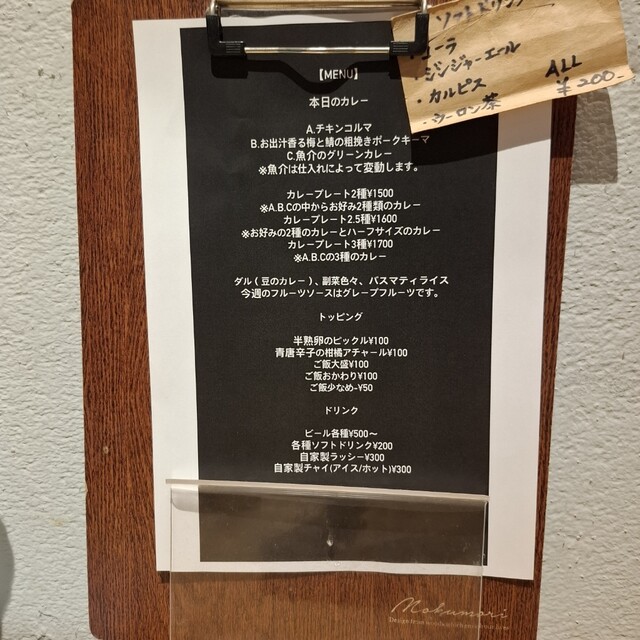 ソフトドリンク
・コーラ
・ジンジャーエール
・カルピス
・シーロン茶
ALL
¥200-
【MENU】
本日のカレー
A.チキンコルマ
B.お出汁香る梅と鯖の粗挽きポークキーマ
C.魚介のグリーンカレー
※魚介は仕入れによって変動します。
カレープレート2種¥1500
※A.B.Cの中からお好み2種類のカレー
カレープレート2.5種¥1600
※お好みの2種のカレーとハーフサイズのカレー
カレープレート3種¥1700
※A.B.Cの3種のカレー
ダル ( 豆のカレー ) 、副菜色々、バスマティライス
今週のフルーツソースはグレープフルーツです。
トッピング
半熟卵のピックル¥100
青唐辛子の柑橘アチャール¥100
ご飯大盛¥100
ご飯おかわり¥100
ご飯少なめ-¥50
ドリンク
ビール各種¥500〜
各種ソフトドリンク¥200
自家製ラッシー¥300
自家製チャイ(アイス/ホット)¥300
Mokumori